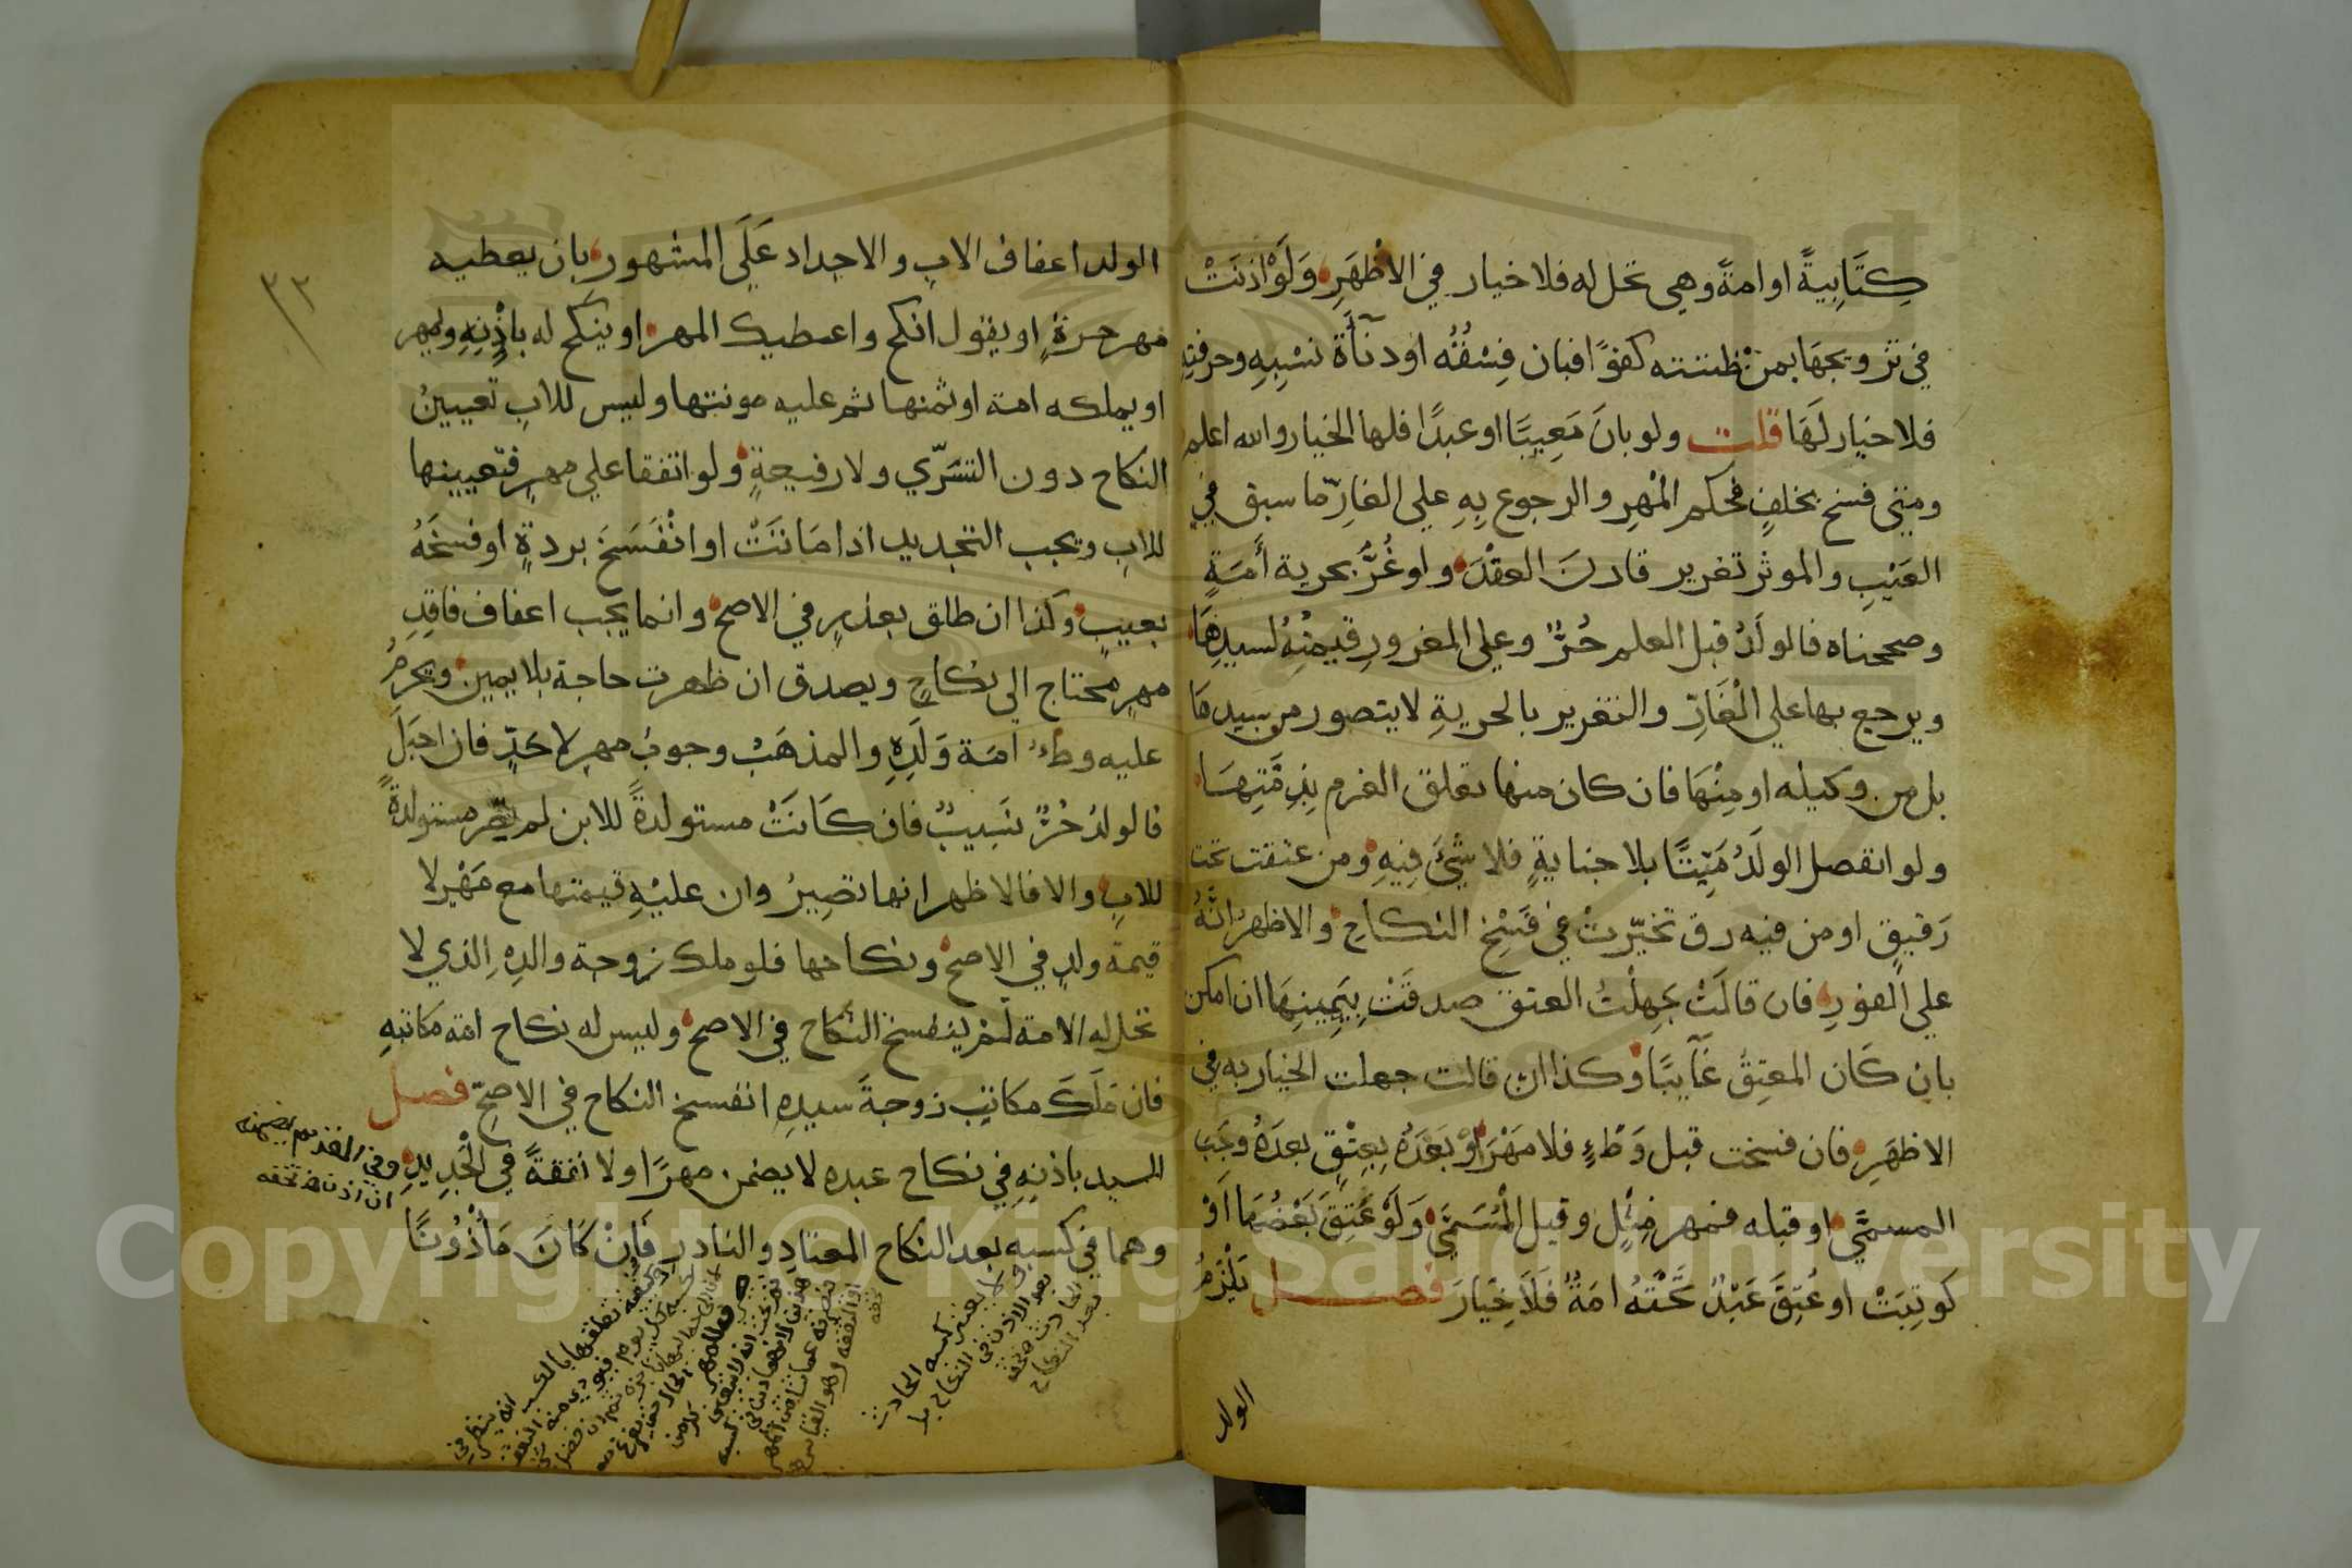 كِتَابِيةً او امةً وهي تحل له فلا خيار في الاظهَرِ وَلَوْ اذنَتْ
في تزويجهَا بمن ظنتته كفوًا فبان فِسْقُهُ او دنآَة نَسَبِهِ وحرفتِهِ
فلا خيار لَهَا قلت ولو بانَ مَعِيبًا او عبدًا فلها الخيار والله اعلم
ومتي فسخ بخلفٍ فحكم المْهرِ والرجوع بِهِ علي الغارّ ما سبق في
العَيْبِ والموثر تغرير قارنَ العقْدَ ولو غُرَّ بحرية أَمَةٍ
وصححناه فالولَدُ قبل العلم حُرٌّ وعلي المغرورِ قيمتُهُ لسيدِهَا
ويرجع بها علي الْغَارِّ والتغرير بالحريةِ لا يتصور من سيدهَا
بل من وكيله او مِنْهَا فان كان منها تعلق الغرم بِذِمَّتِهَا
ولو انفصل الولَدُ مَيّتًا بلا جنايةٍ فلا شَئَ فِيهِ ومن عتقت تحت
رَقيقٍ او من فيه رق تخيّرتْ في فَسْخِ النكاحِ والاظهرُ انَّهُ
علي الفورِ فان قالَتْ جَهِلْتُ العتق صدقَتْ بِيَمِينِهَا ان امكن
بان كَان المعتِقُ غآيبًا وكذا ان قالت جهلت الخيار به في
الاظهَرِ فان فسخت قبل وَطْءٍ فلا مَهْرَ اوْ بَعْدَهُ بِعِتْقٍ بعدَهُ وجَبَ
المسمَّي او قبله فمهر مِثْلٍ وقيل الْمُسَمَّي وَلَوْ عَتِقَ بَعْضُهَا اَوْ
كوتِبَتْ او عُتِقَ عَبْدٌ تَحْتَهُ امَةٌ فَلَا خِيَارَ فصل يَلْزَمُ
الولد
٣٣
الولد اعفاف الابِ والاجداد عَلَي المشهور بان يعطيه
مهر حرةٍ او يقول انكح واعطيك المهر او ينكح له باذْنِهِ ويمهر
او يملكه امة او ثمنها ثم عليه مونتها وليس للابِ تعيينُ
النكاح دون التسَرّي ولا رفيعةٍ ولو اتفقا علي مهرٍ فتعيينها
للابِ ويجب التجديد اذا مَاتَتْ او انْفَسَخَ بردةٍ او فسخَهُ
بعيبٍ وكذا ان طلق بعذرٍ في الاصح وانما يجب اعفاف فاقِدِ
مهرٍ محتاج الي نكاحٍ ويصدق ان ظهرت حاجة بلا يمين ويحرمُ
عليه وطءُ امَة وَلَدِهِ والمذهَبُ وجوبُ مهرٍ لا حَدٍّ فان احبَلَ
فالولدُ حُرٌّ نَسِيبٌ فان كَانَتْ مستولدةً للابن لم تصِر مستولدةً
للابِ والا فالاظهر انها تصِيرُ وان عليْهِ قيمتها مع مَهْرٍ لا
قيمة ولدٍ في الاصح ونكاحها فلو ملك زوجة والدِهِ الذي لا
تحل له الامة لَمْ ينفسخ النكاح في الاصح وليس له نكاح امة مكاتبهِ
فان مَلَكَ مكاتبٍ زوجةَ سيدِهِ انفسخ النكاح في الاصحّ فصل
السيد باذنِهِ في نكاح عبده لا يضمن مهرًا ولا نفقةً في الْجَدِيدِ وفي القديم يضمنه
وهما في كسبه بعد النكاح المعتادِ والنادرِ فَاِنْ كَانَ مَأْذُونًا
لا يعتبر كسبه الحادث
بعد الاذن في النكاح
الحادث
بعد النكاح
Copyright © King Saud University